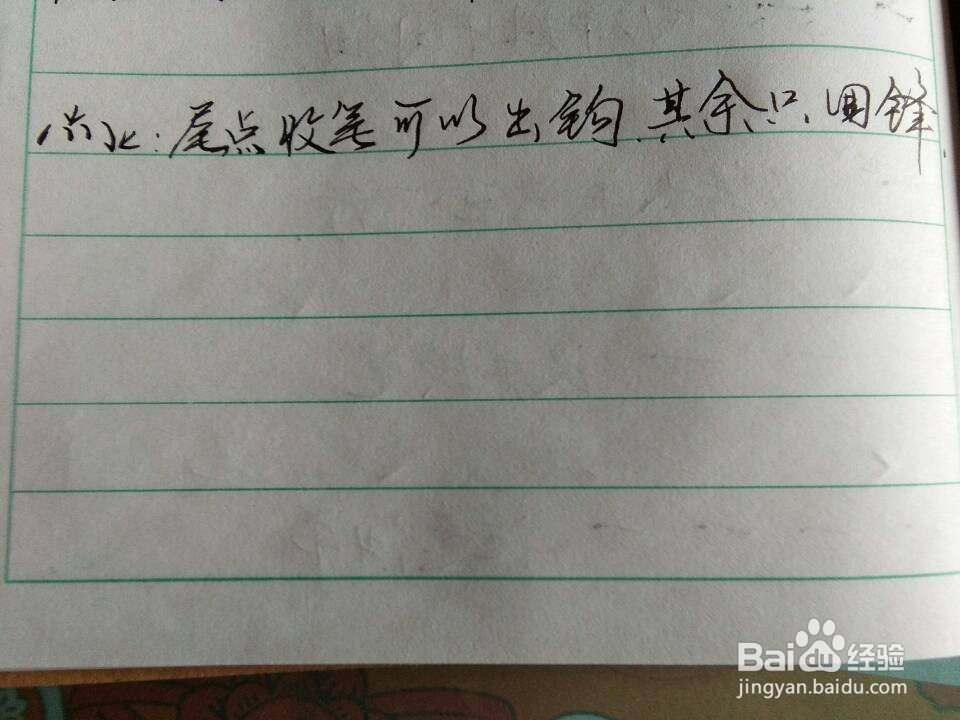 尾点收笔可以出钩.其余只回锋.
Baidu经验
jingyan.baidu.com